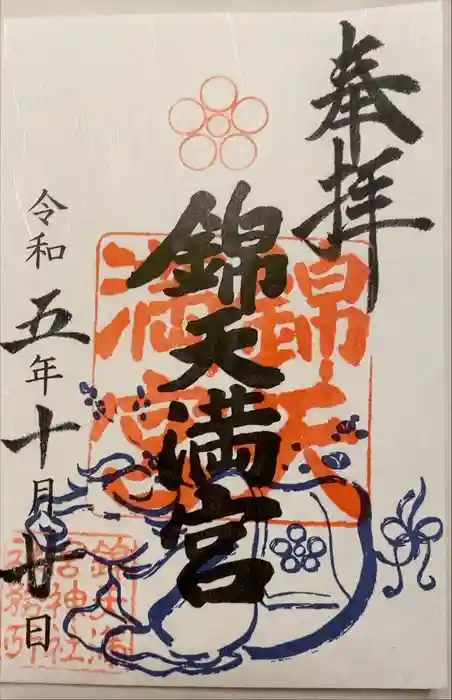 奉拝
錦天満宮
錦天
満宮
令和五年十月廿日
錦天満
宮神社